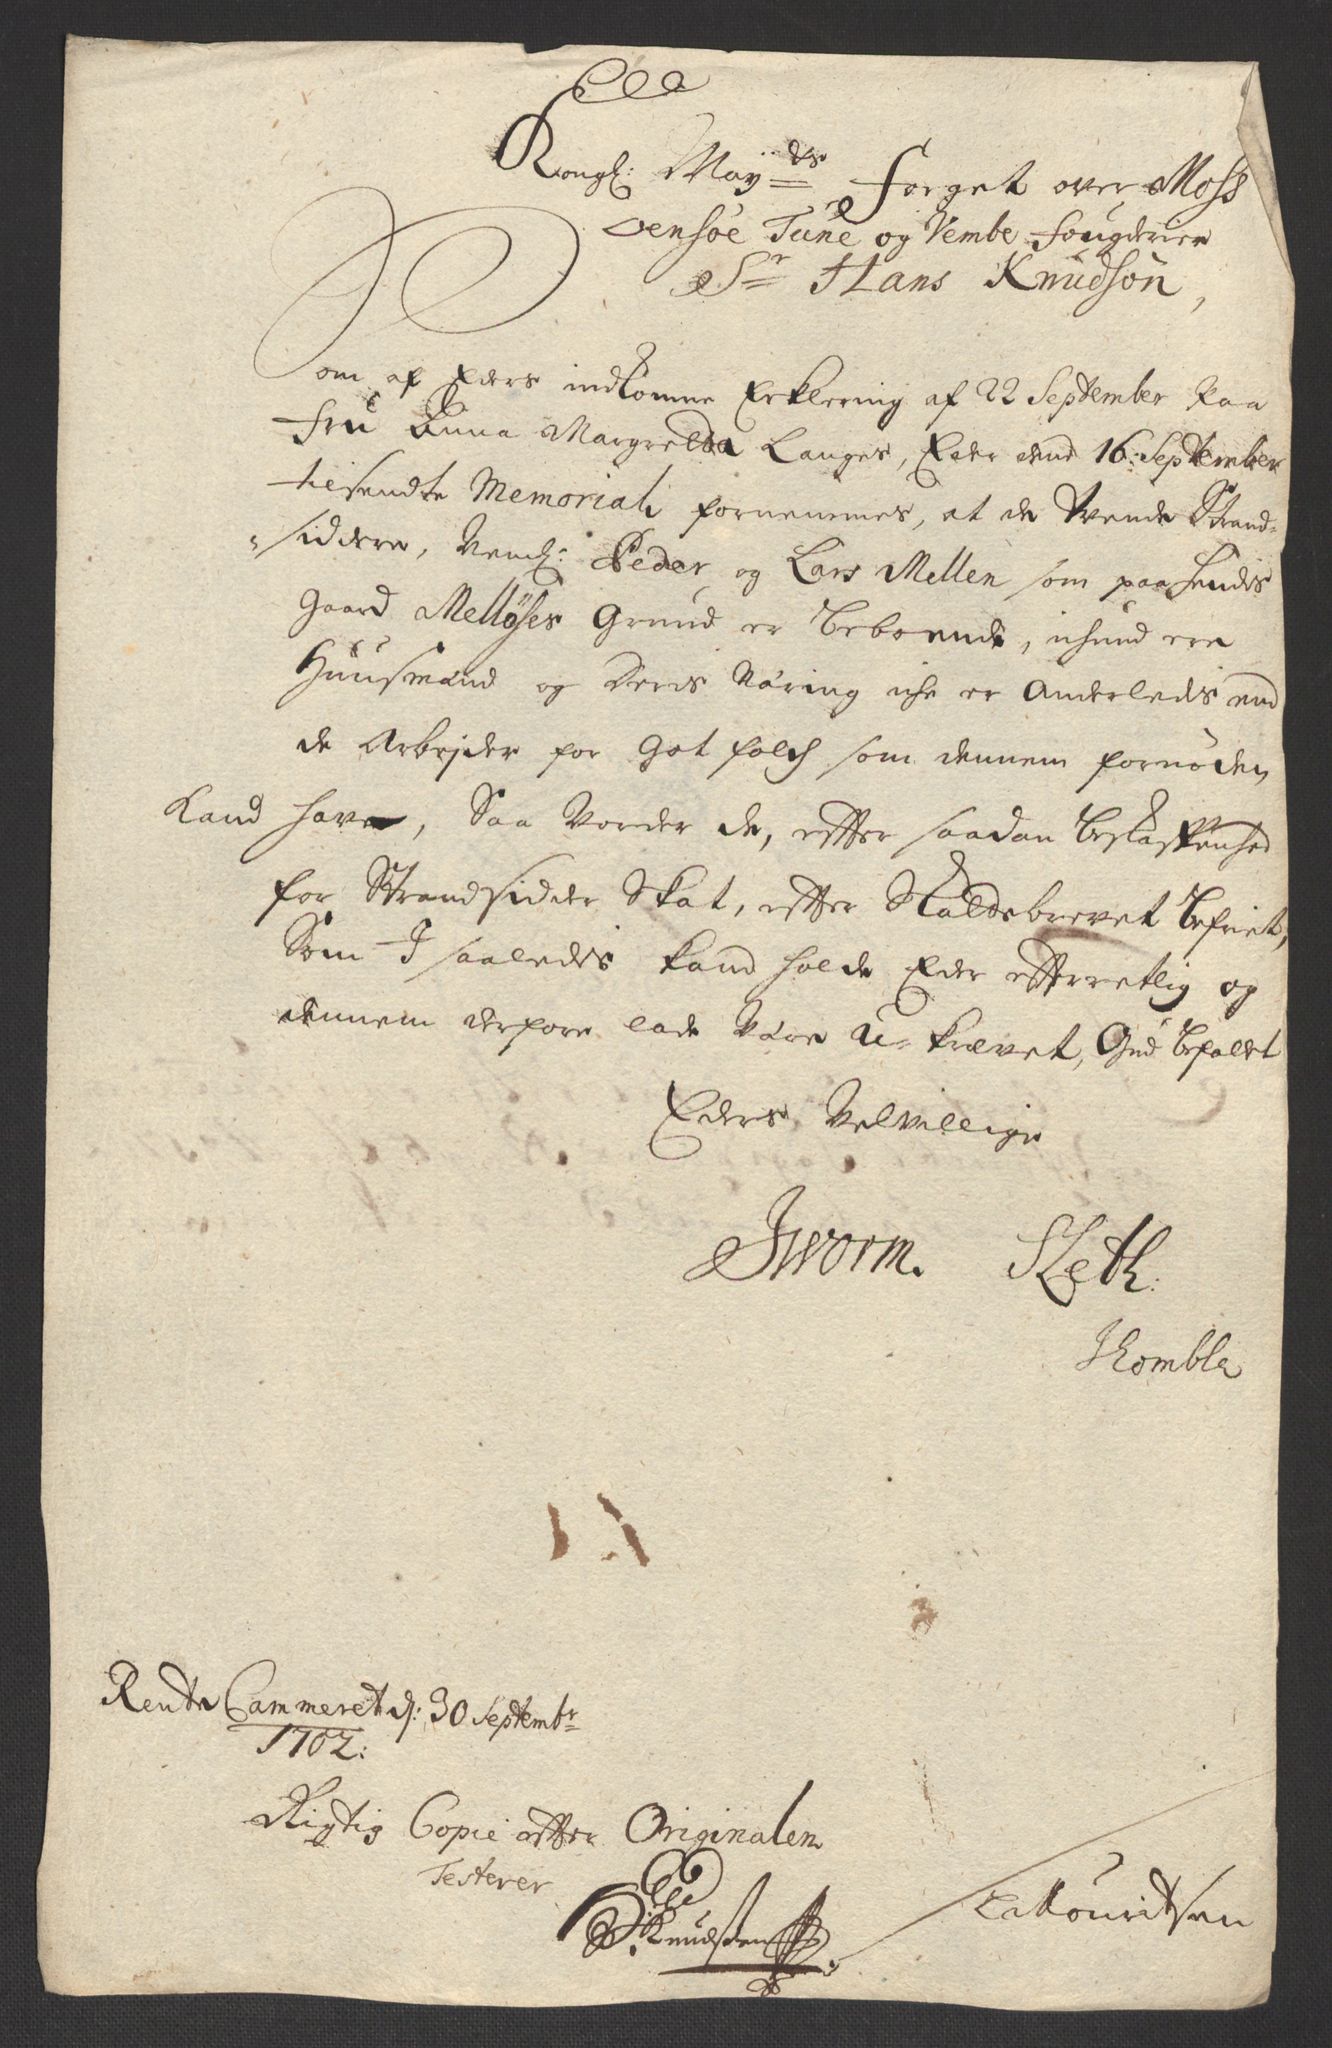 Kongl: May:ds Forget over Moss
oensöe Tune og Vembe Fougderier
Sr Hans Knudsön,
Som af Eders indkomne Erklering af 22 September Paa
Fru Anna Margretha Langes, Eder dend 16: September
tilsendte Memorial fornemmes, at de tvende Strand-
siddere, Neml: Peder og Lars Mellen som paa hendes
Gaard Mellöses Grund er beboende, ichund ere
Huusmænd og deris Næring iche er Anderledis end
de Arbejder for Got folch som dennem fornøden
Kand have, Saa Vorder de, efter saadan Beskaffenhed
for Strandsidder Skat, efter Skaldebrevet befriet,
Som I saaledis kand holde Eder efterretlig og
dennem derfore lade Være u-krævet, Gud befalet
Eders Velvillige
JWorm. SLeth:
Rente Cammeret d: 30 Septembr
1702:
Rigtig Copie efter Originalen
Testerer
H: Knudsen
LaMouritsen